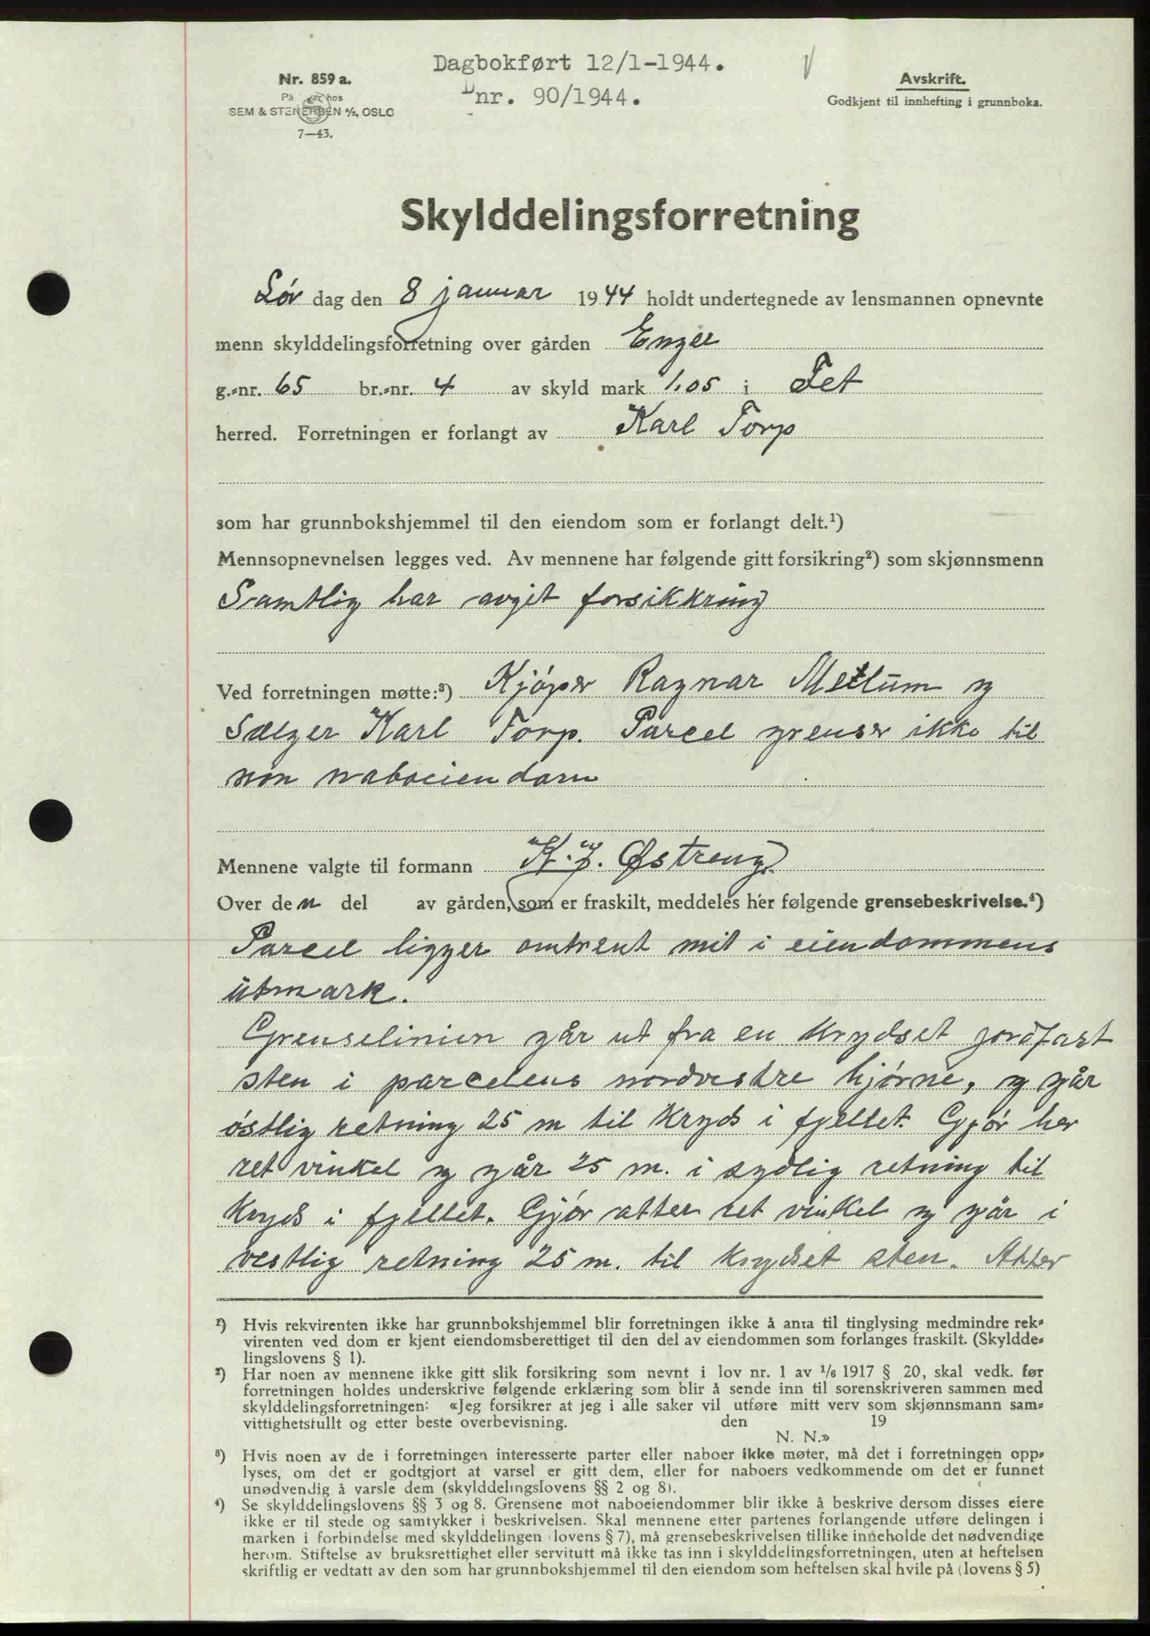 Dagbokført 12/1-1944.
Dnr. 90/1944.
Nr. 859 a.
På lager hos
SEM & STENERSEN A/S, OSLO
7—43.
Avskrift.
Godkjent til innhefting i grunnboka.
Skylddelingsforretning
Lør dag den 8 januar 1944 holdt undertegnede av lensmannen opnevnte
menn skylddelingsforretning over gården Enger
g.-nr. 65 br.-nr. 4 av skyld mark 1,05 i Fet
herred. Forretningen er forlangt av Karl Torp
som har grunnbokshjemmel til den eiendom som er forlangt delt.¹)
Mennsopnevnelsen legges ved. Av mennene har følgende gitt forsikring²) som skjønnsmenn
Samtlig har avgit forsikkring
Ved forretningen møtte:³) Kjøper Ragnar Mellum og
Sælger Karl Torp. Parcel grenser ikke til
non naboeiendom
Mennene valgte til formann K. J. Østreng.
Over den del av gården, som er fraskilt, meddeles her følgende grensebeskrivelse.⁴)
Parcel ligger omtrent mit i eiendommens
utmark.
Grenselinien går ut fra en krydset jordfast
sten i parcelens nordvestre hjørne, og går
østlig retning 25 m til kryds i fjellet. Gjør her
ret vinkel og går 25 m. i sydlig retning til
kryds i fjellet. Gjør atter ret vinkel og går i
vestlig retning 25 m. til krydset sten. Atter
¹) Hvis rekvirenten ikke har grunnbokshjemmel blir forretningen ikke å anta til tinglysing medmindre rek-
virenten ved dom er kjent eiendomsberettiget til den del av eiendommen som forlanges fraskilt. (Skyldde-
lingslovens § 1).
²) Har noen av mennene ikke gitt slik forsikring som nevnt i lov nr. 1 av 1/6 1917 § 20, skal vedk. før
forretningen holdes underskrive følgende erklæring som blir å sende inn til sorenskriveren sammen med
skylddelingsforretningen: «Jeg forsikrer at jeg i alle saker vil utføre mitt verv som skjønnsmann sam-
vittighetsfullt og etter beste overbevisning. den 19
N. N.»
³) Hvis noen av de i forretningen interesserte parter eller naboer ikke møter, må det i forretningen opp-
lyses, om det er godtgjort at varsel er gitt dem, eller for naboers vedkommende om det er funnet
unødvendig å varsle dem (skylddelingslovens §§ 2 og 8).
⁴) Se skylddelingslovens §§ 3 og 8. Grensene mot naboeiendommer blir ikke å beskrive dersom disses eiere
ikke er til stede og samtykker i beskrivelsen. Skal mennene etter partenes forlangende utføre delingen i
marken i forbindelse med skylddelingen (lovens § 7), må grensebeskrivelsen tillike inneholde det nødvendige
herom. Stiftelse av bruksrettighet eller servitutt må ikke tas inn i skylddelingsforretningen, uten at heftelsen
skriftlig er vedtatt av den som har grunnbokshjemmel til den eiendom som heftelsen skal hvile på (lovens § 5)